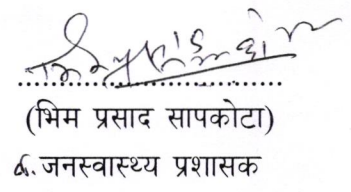 (भिम प्रसाद सापकोटा)
जनस्वास्थ्य प्रशासक